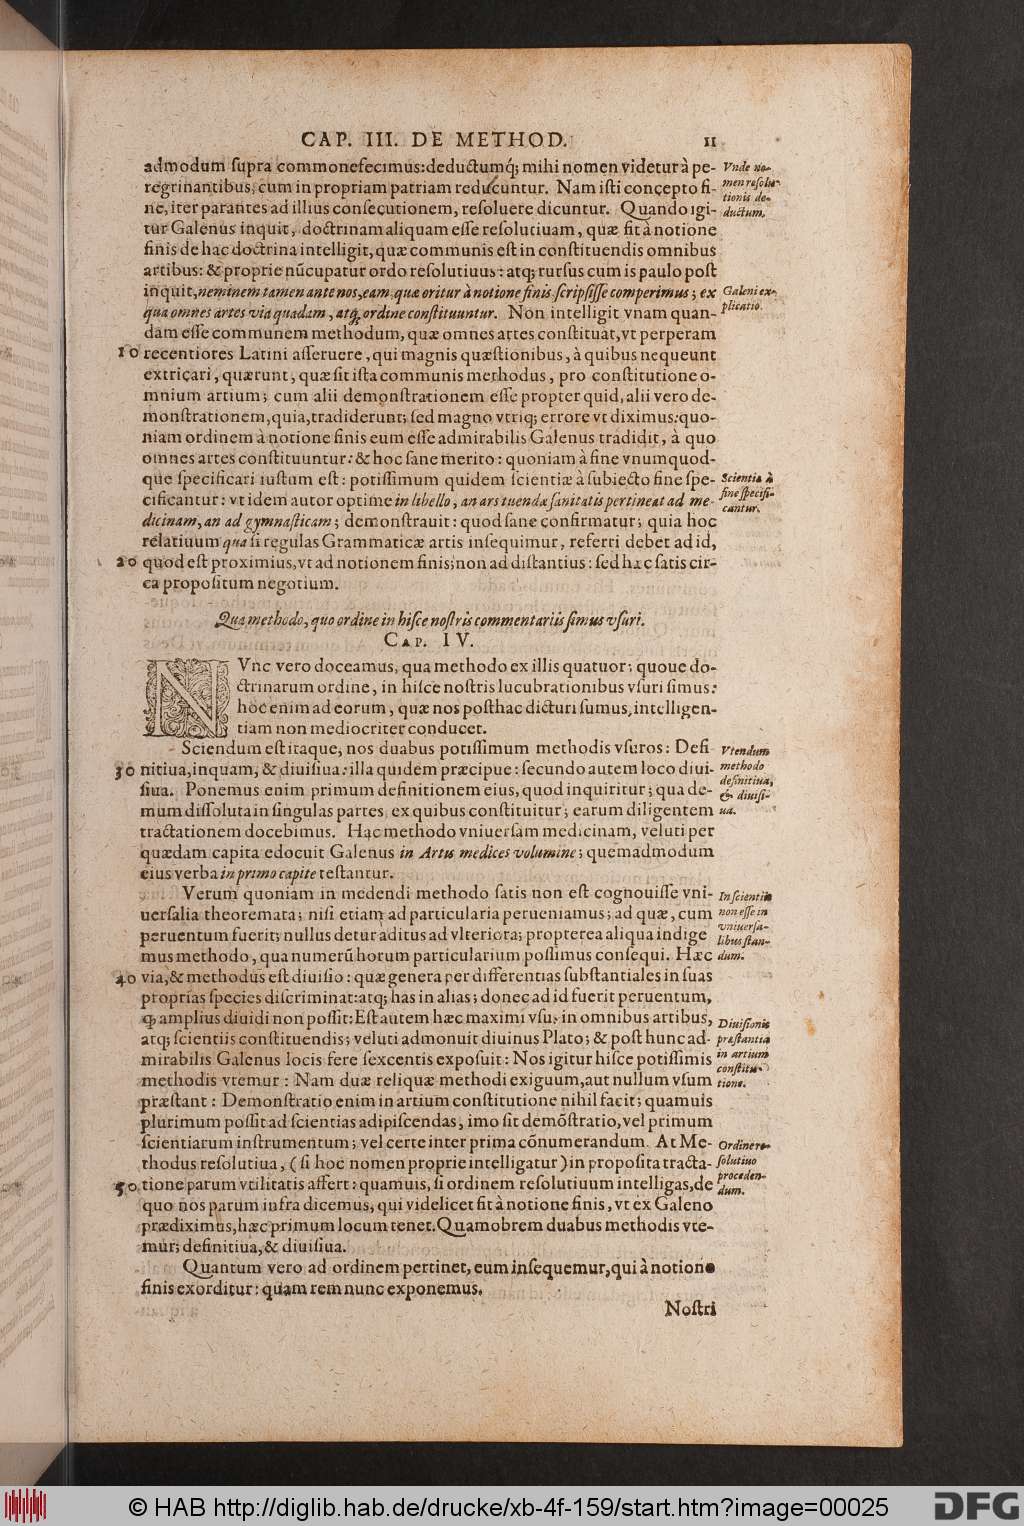 CAP. III. DE METHOD. 11
admodum ſupra commonefecimus: deductumq́; mihi nomen videtur à pe-
regrinantibus, cum in propriam patriam reducuntur. Nam iſti concepto fi-
ne, iter parantes ad illius conſecutionem, reſoluere dicuntur. Quando igi-
tur Galenus inquit, doctrinam aliquam eſſe reſolutiuam, quæ fit à notione
finis de hac doctrina intelligit, quæ communis eſt in conſtituendis omnibus
artibus: & proprie nūcupatur ordo reſolutiuus: atq; rurſus cum is paulo poſt
inquit, neminem tamen ante nos, eam, quæ oritur à notione finis ſcripſiſſe comperimus; ex
qua omnes artes via quadam, atq; ordine conſtituuntur. Non intelligit vnam quan-
dam eſſe communem methodum, quæ omnes artes conſtituat, vt perperam
10 recentiores Latini aſſeruere, qui magnis quæſtionibus, à quibus nequeunt
extricari, quærunt, quæ ſit iſta communis methodus, pro conſtitutione o-
mnium artium; cum alii demonſtrationem eſſe propter quid, alii vero de-
monſtrationem, quia, tradiderunt; ſed magno vtriq; errore vt diximus: quo-
niam ordinem à notione finis eum eſſe admirabilis Galenus tradidit, à quo
omnes artes conſtituuntur: & hoc ſane merito: quoniam à fine vnumquod-
que ſpecificari iuſtum eſt: potiſſimum quidem ſcientiæ à ſubiecto fine ſpe-
cificantur: vt idem autor optime in libello, an ars tuendæ ſanitatis pertineat ad me-
dicinam, an ad gymnaſticam; demonſtrauit: quod ſane confirmatur; quia hoc
relatiuum qua ſi regulas Grammaticæ artis inſequimur, referri debet ad id,
20 quod eſt proximius, vt ad notionem finis; non ad diſtantius: ſed hæc ſatis cir-
ca propoſitum negotium.
Vnde no-
men reſolu-
tionis de-
ductum.
Galeni ex-
plicatio.
Scientia à
fine ſpecifi-
cantur.
Qua methodo, quo ordine in hiſce noſtris commentariis ſimus vſuri.
CAP. IV.
NVnc vero doceamus, qua methodo ex illis quatuor; quoue do-
ctrinarum ordine, in hiſce noſtris lucubrationibus vſuri ſimus:
hoc enim ad eorum, quæ nos poſthac dicturi ſumus, intelligen-
tiam non mediocriter conducet.
Sciendum eſt itaque, nos duabus potiſſimum methodis vſuros: Defi-
30 nitiua, inquam, & diuiſiua: illa quidem præcipue: ſecundo autem loco diui-
ſiua. Ponemus enim primum definitionem eius, quod inquiritur; qua de-
mum diſſoluta in ſingulas partes, ex quibus conſtituitur; earum diligentem
tractationem docebimus. Hac methodo vniuerſam medicinam, veluti per
quædam capita edocuit Galenus in Artis medices volumine; quemadmodum
eius verba in primo capite teſtantur.
Verum quoniam in medendi methodo ſatis non eſt cognouiſſe vni-
uerſalia theoremata; niſi etiam ad particularia perueniamus; ad quæ, cum
peruentum fuerit; nullus detur aditus ad vlteriora; propterea aliqua indige
mus methodo, qua numerū horum particularium poſſimus conſequi. Hæc
40 via, & methodus eſt diuiſio: quæ genera per differentias ſubſtantiales in ſuas
proprias ſpecies diſcriminat: atq; has in alias; donec ad id fuerit peruentum,
q; amplius diuidi non poſſit: Eſt autem hæc maximi vſus in omnibus artibus,
atq; ſcientiis conſtituendis; veluti admonuit diuinus Plato; & poſt hunc ad-
mirabilis Galenus locis fere ſexcentis expoſuit: Nos igitur hiſce potiſſimis
methodis vtemur: Nam duæ reliquæ methodi exiguum, aut nullum vſum
præſtant: Demonſtratio enim in artium conſtitutione nihil facit; quamuis
plurimum poſſit ad ſcientias adipiſcendas, imo ſit demōſtratio, vel primum
ſcientiarum inſtrumentum; vel certe inter prima cōnumerandum. At Me-
thodus reſolutiua, (ſi hoc nomen proprie intelligatur) in propoſita tracta-
50 tione parum vtilitatis affert: quamuis, ſi ordinem reſolutiuum intelligas, de
quo nos parum infra dicemus, qui videlicet fit à notione finis, vt ex Galeno
prædiximus, hæc primum locum tenet. Quamobrem duabus methodis vte-
mur; definitiua, & diuiſiua.
Quantum vero ad ordinem pertinet, eum inſequemur, qui à notione
finis exorditur: quam rem nunc exponemus.
Noſtri
Vtendum
methodo
definitiua,
& diuiſi-
ua.
In ſcientiis
non eſſe in
vniuerſa-
libus ſtan-
dum.
Diuiſionis
præſtantia
in artium
conſtitu-
tione.
Ordine re-
ſolutiuo
proceden-
dum.
© HAB http://diglib.hab.de/drucke/xb-4f-159/start.htm?image=00025
DFG